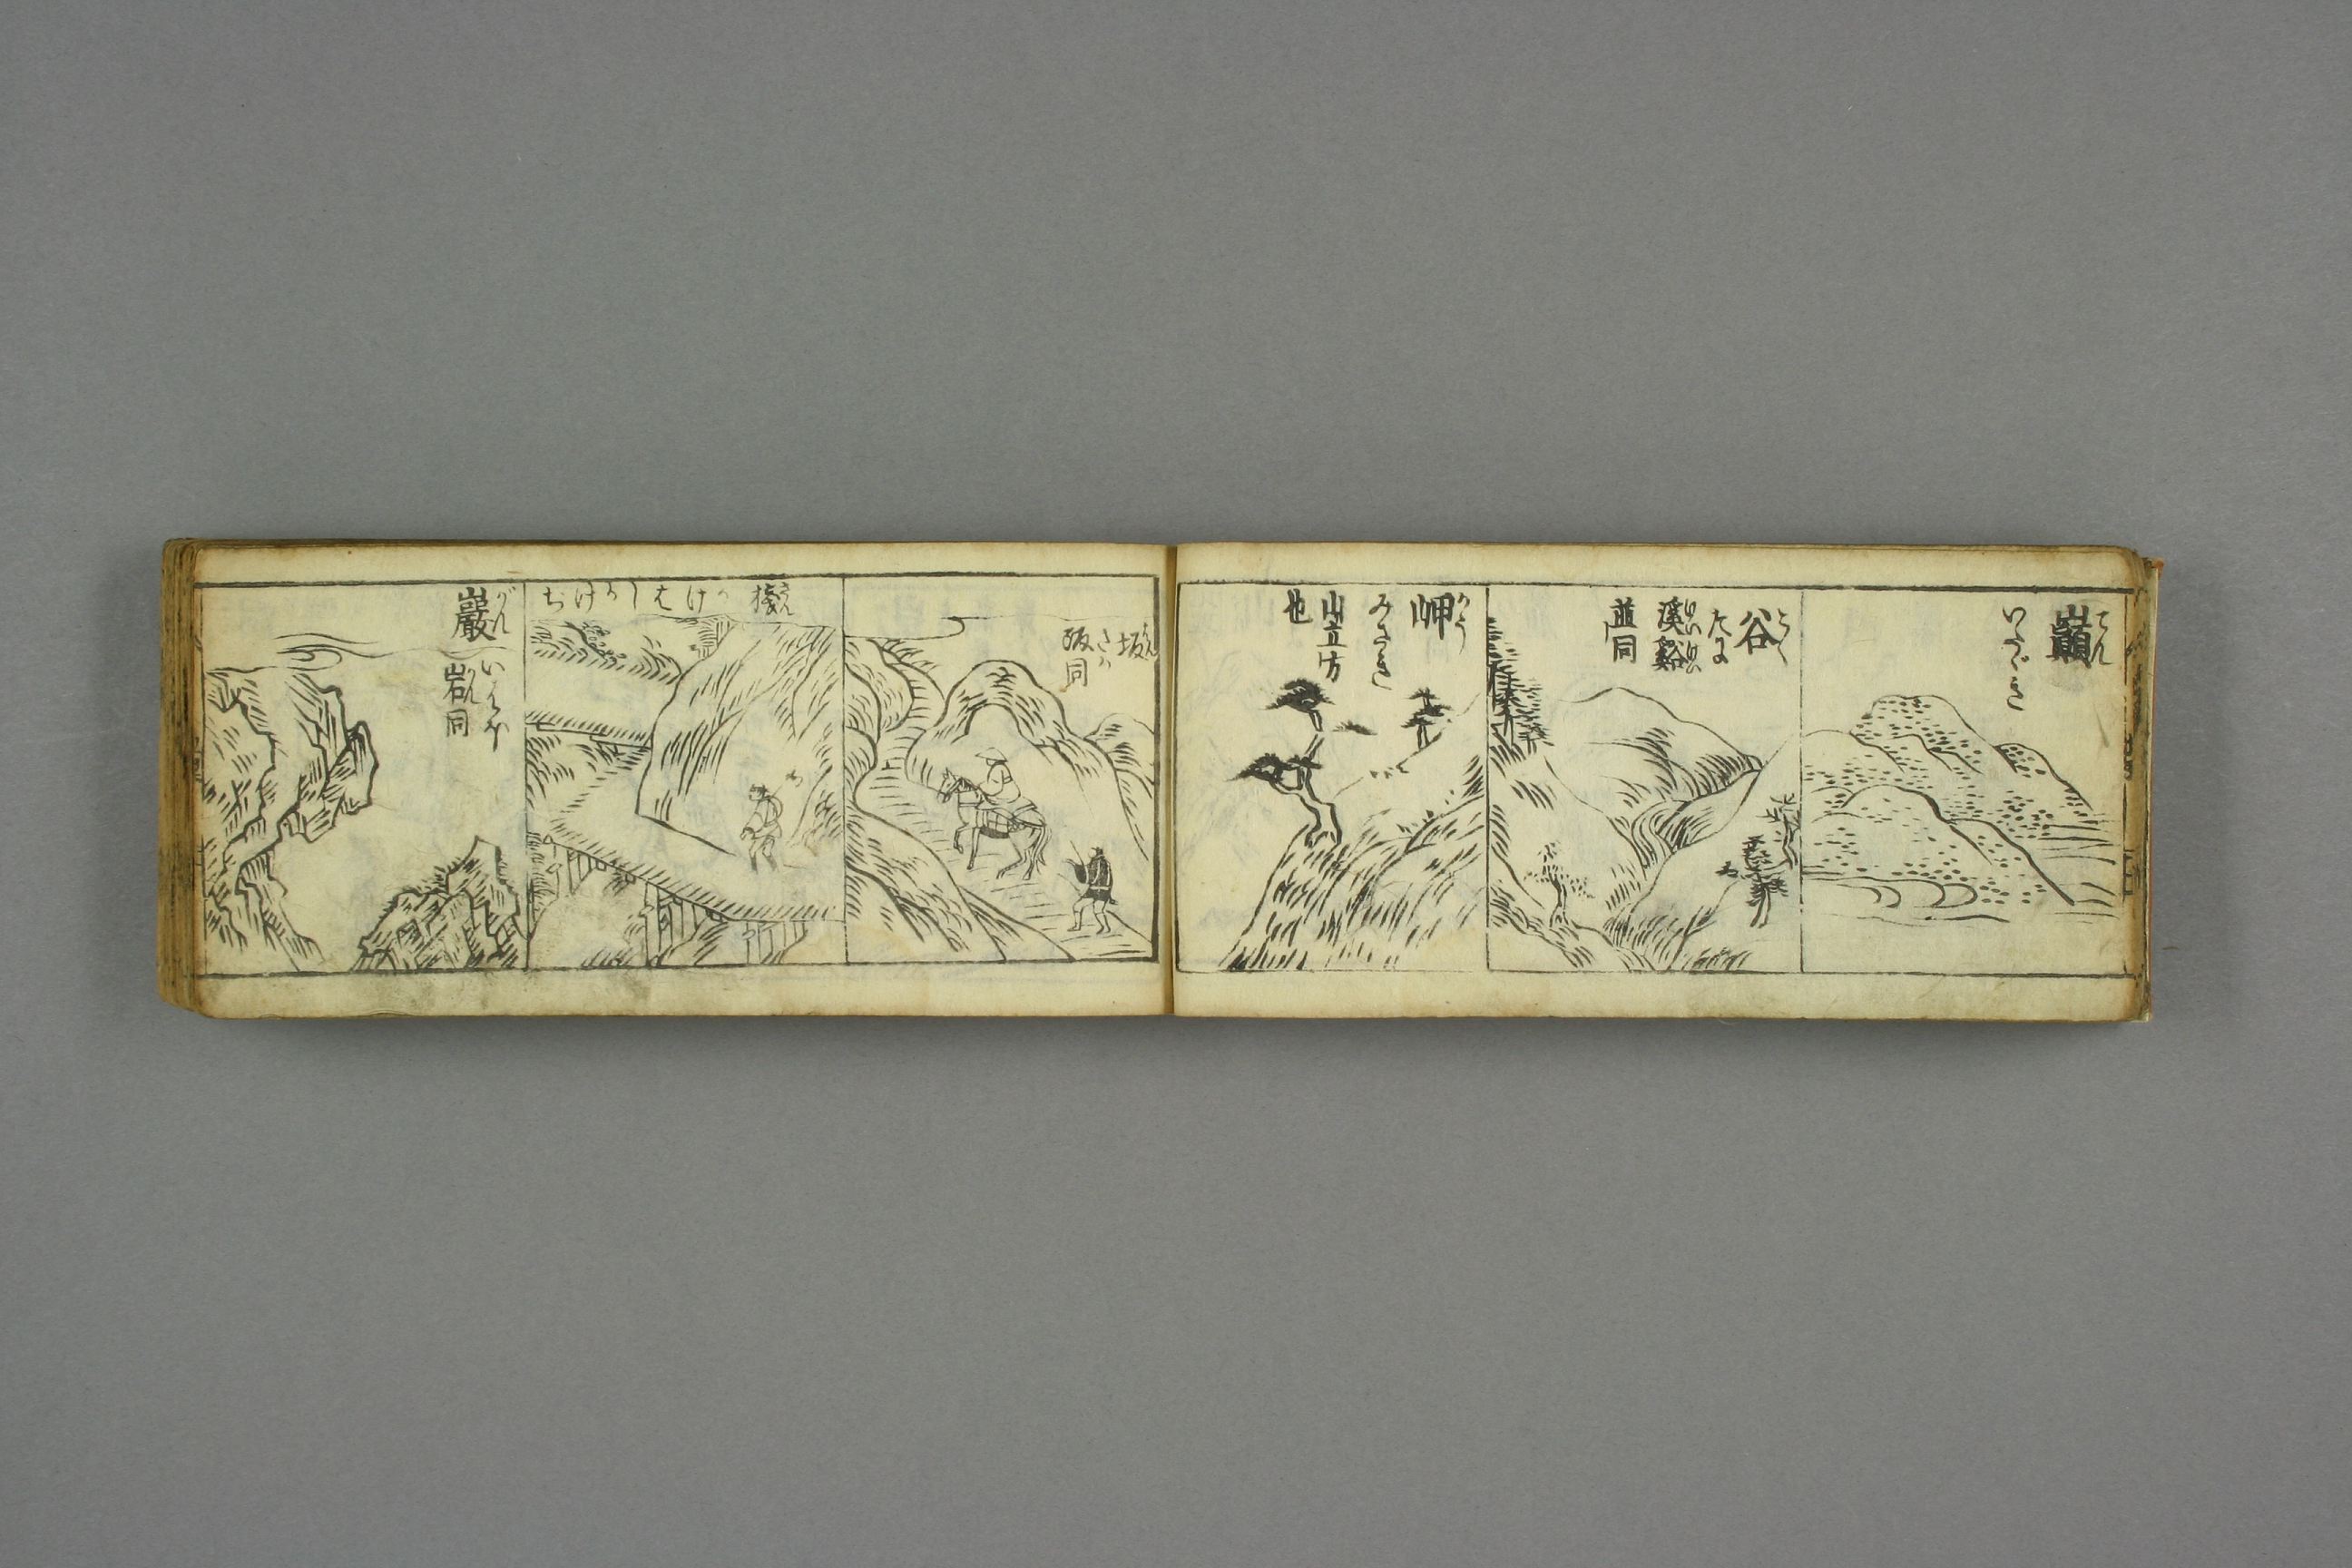 巓
てん
いたゞき
谷
こく
たに
溪谿
けい けい
並同
岬
かう
みさき
山立方
也
坂
はん
さか
阪同
棧
さん
かけはし
かけぢ
巖
がん
いはほ
岩同
がん